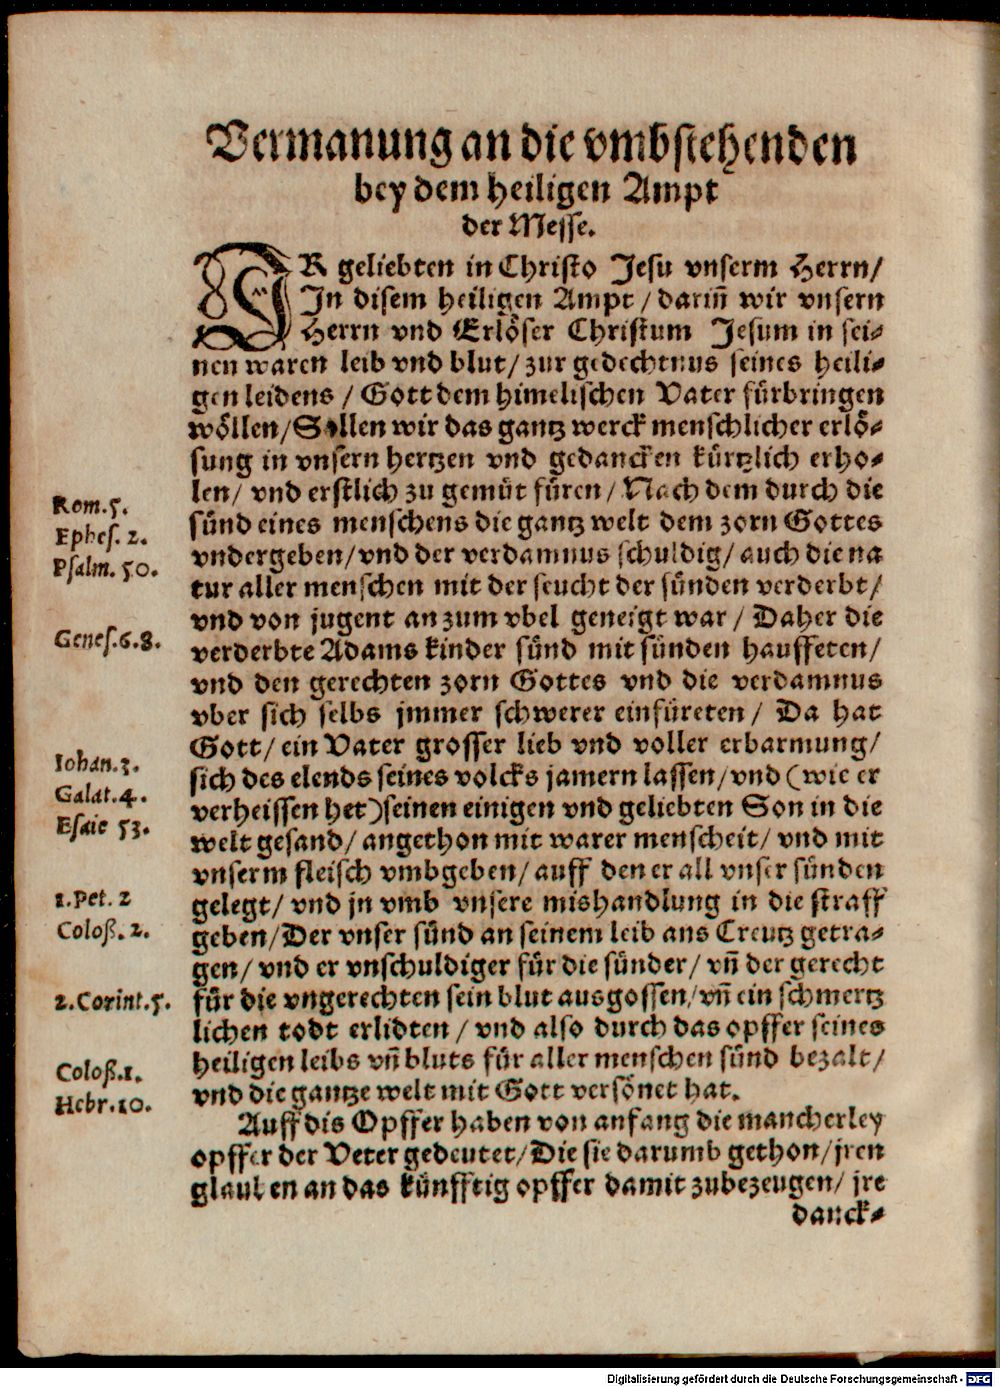 Vermanung an die vmbstehenden
bey dem heiligen Ampt
der Messe.
IR geliebten in Christo Jesu vnserm Herrn/
In disem heiligen Ampt/ dariñ wir vnsern
Herrn vnd Erlöser Christum Jesum in sei-
nen waren leib vnd blut/ zur gedechtnus seines heili-
gen leidens / Gott dem himelischen Vater fürbringen
wöllen/ Sollen wir das gantz werck menschlicher erlö-
sung in vnsern hertzen vnd gedancken kürtzlich erho-
len/ vnd erstlich zu gemüt füren / Nach dem durch die
Rom. 5.
sünd eines menschens die gantz welt dem zorn Gottes
Ephes. 2.
vndergeben/ vnd der verdamnus schuldig/ auch die na
Psalm. 50.
tur aller menschen mit der seucht der sünden verderbt/
vnd von jugent an zum vbel geneigt war / Daher die
Genes. 6. 8.
verderbte Adams kinder sünd mit sünden hauffeten/
vnd den gerechten zorn Gottes vnd die verdamnus
vber sich selbs jmmer schwerer einfüreten / Da hat
Gott/ ein Vater grosser lieb vnd voller erbarmung/
Iohan. 3.
sich des elends seines volcks jamern lassen/ vnd (wie er
Galat. 4.
verheissen het) seinen einigen vnd geliebten Son in die
Esaie 53.
welt gesand/ angethon mit warer menscheit/ vnd mit
vnserm fleisch vmbgeben/ auff den er all vnser sünden
1. Pet. 2
gelegt/ vnd jn vmb vnsere mishandlung in die straff
Coloß. 2.
geben/ Der vnser sünd an seinem leib ans Creutz getra-
gen/ vnd er vnschuldiger für die sünder/ vñ der gerecht
2. Corint. 5.
für die vngerechten sein blut ausgossen/ vñ ein schmertz
lichen todt erlidten / vnd also durch das opffer seines
heiligen leibs vñ bluts für aller menschen sünd bezalt/
Coloß. 1.
vnd die gantze welt mit Gott versönet hat.
Hebr. 10.
Auff dis Opffer haben von anfang die mancherley
opffer der Veter gedeutet/ Die sie darumb gethon/ jren
glauben an das künfftig opffer damit zubezeugen/ jre
danck-
Digitalisierung gefördert durch die Deutsche Forschungsgemeinschaft - DFG